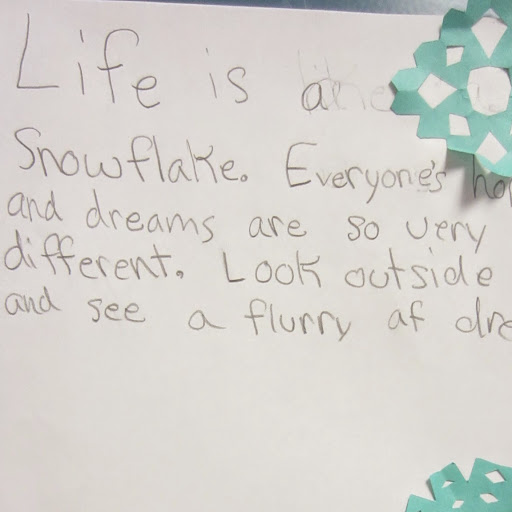 Life is a
Snowflake. Everyone's ho
and dreams are so very
different. Look outside
and see a flurry af dre